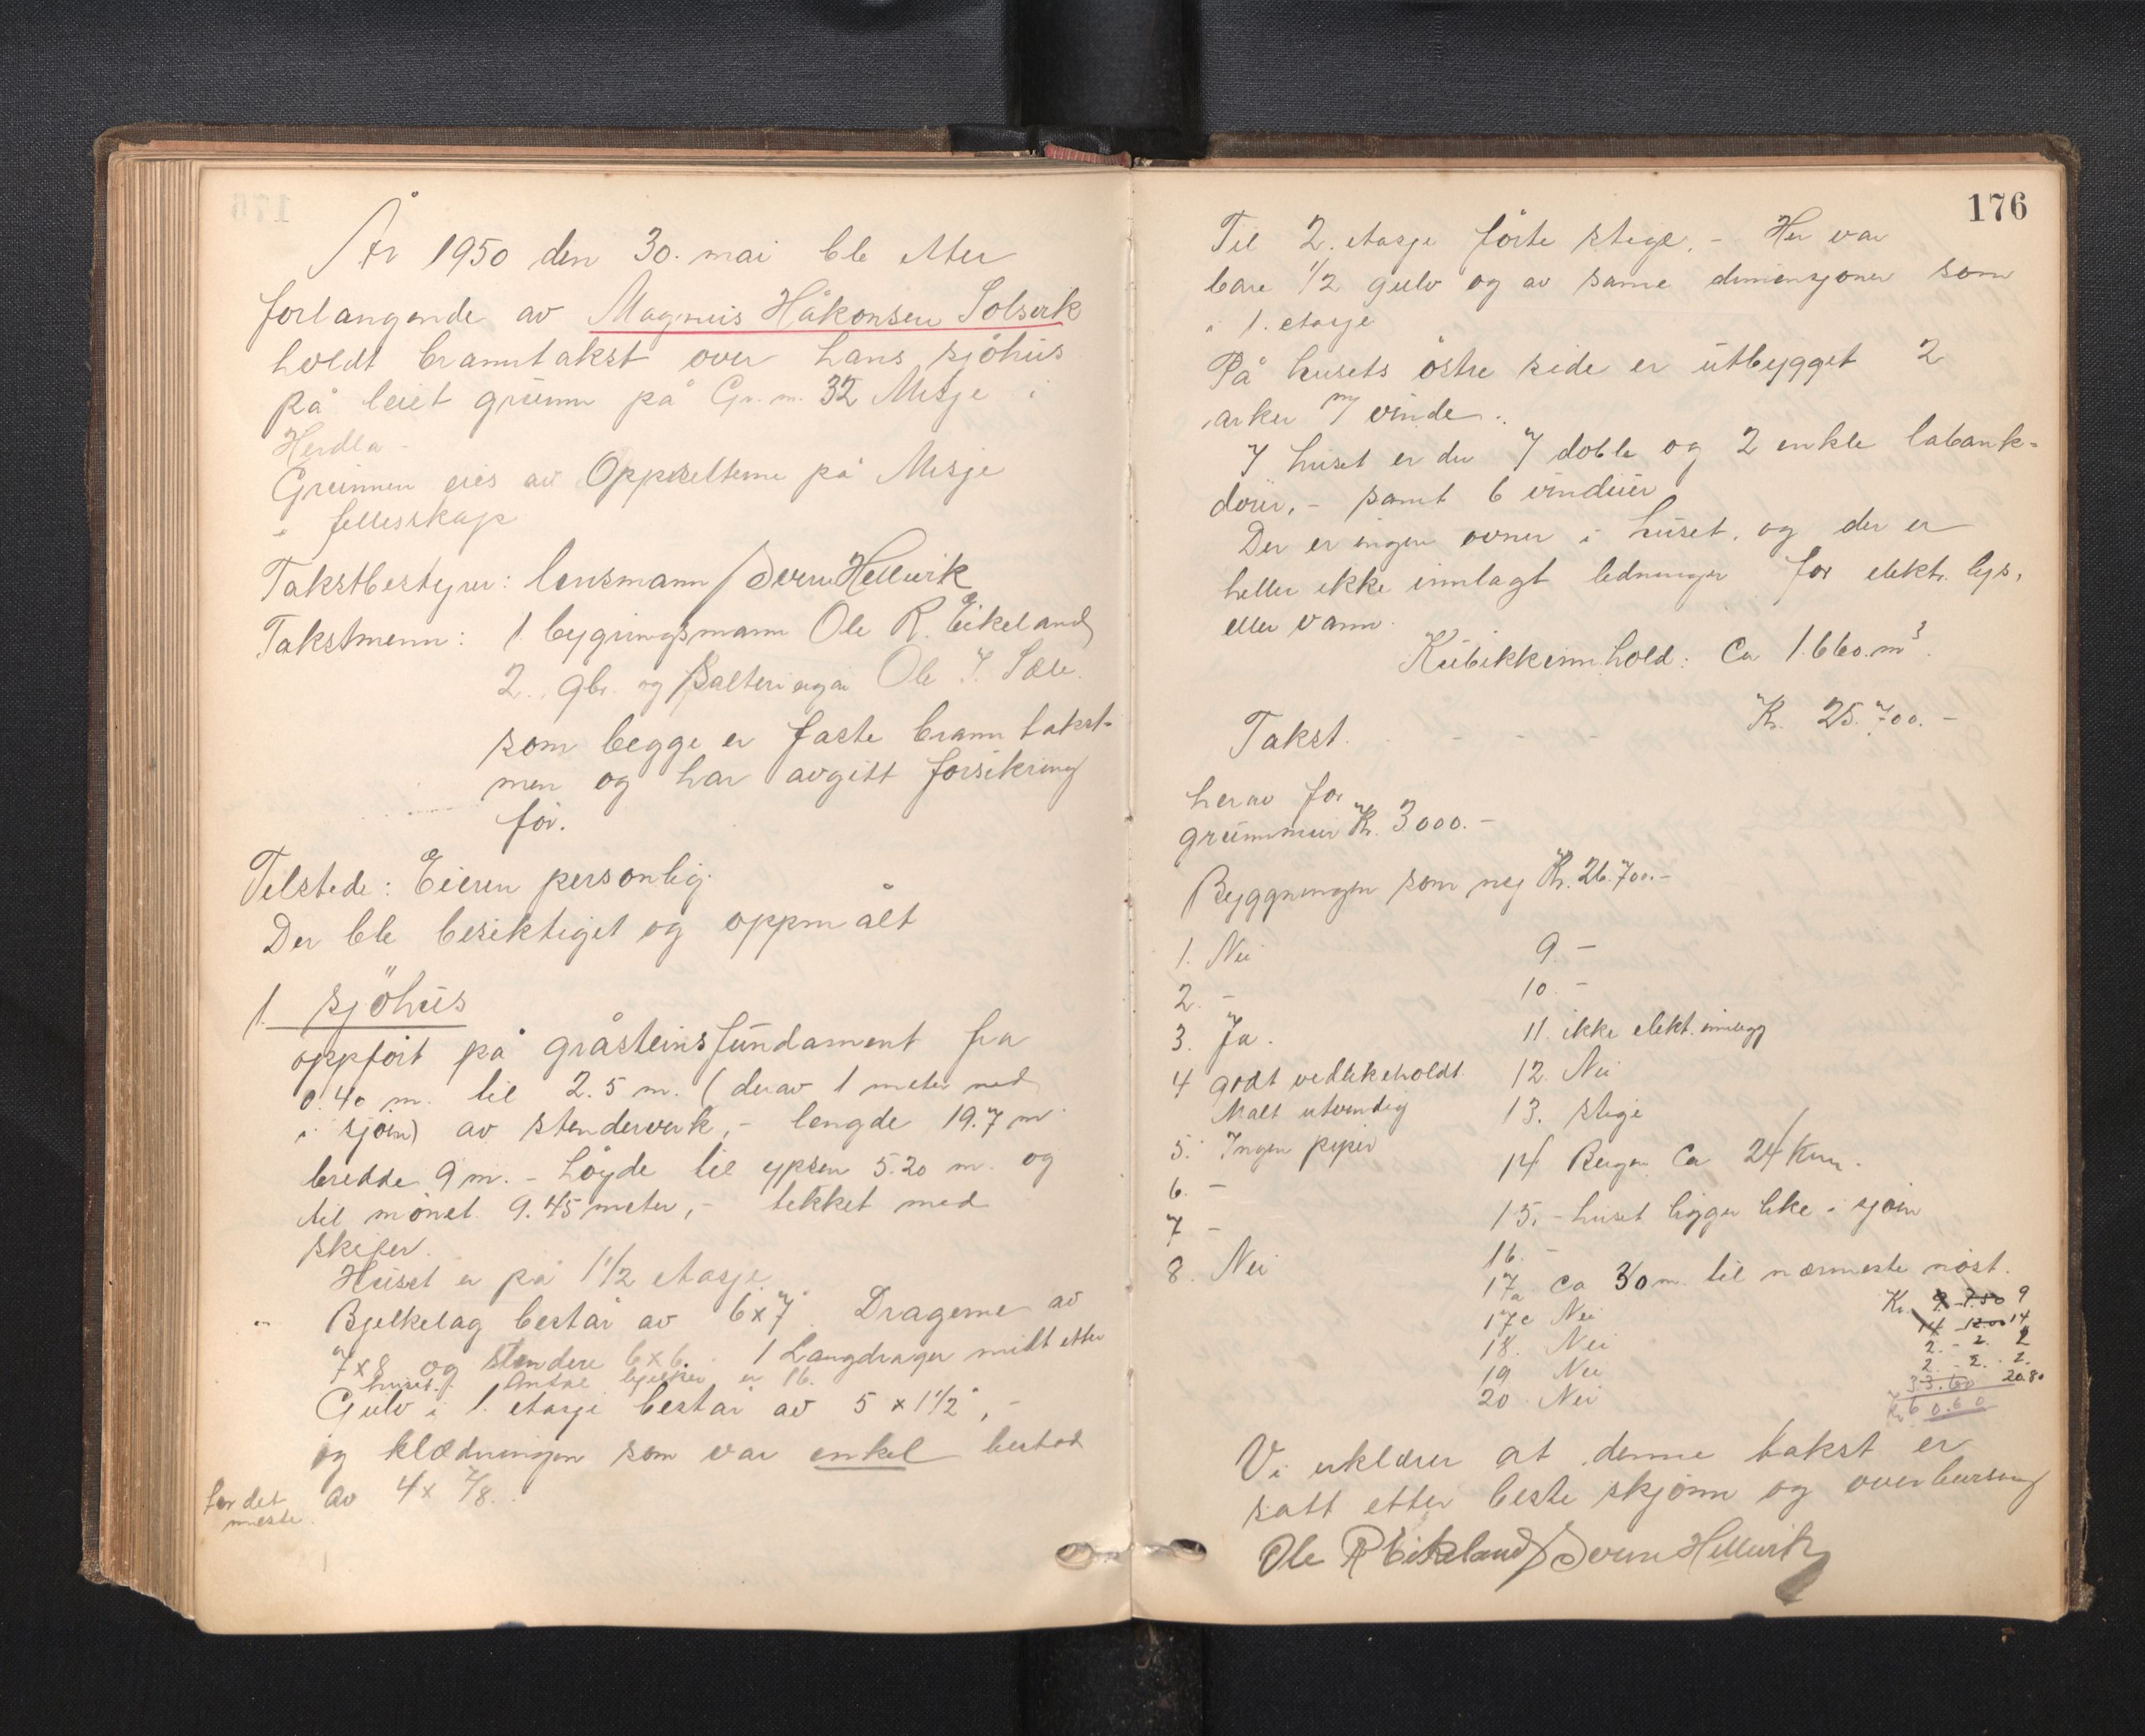 År 1950 den 30. mai ble etter
forlangende av Magnus Håkonsen Solsvik
holdt branntakst over hans sjöhus
på leiet grunn på Gr. n. 32 Misje i
Herdla -
Grunnen eies av Oppsitterne på Misje
i fellesskap
Takstbestyrer: lensmann Sverre Hellevik
Takstmenn: 1. bygningsmann Ole R. Eikeland
2. gbr. og Ole I. Sæle.
som begge er faste branntakst-
men og har avgitt forsikring
för.
Tilstede: Eieren personlig.
Der ble besiktiget og oppmålt
1. sjöhus
oppfört på gråsteinsfundament fra
0.40 m. til 2.5 m. (derav 1 meter ned
i sjöen) av stenderverk, - lengde 19.7 m
bredde 9 m. - höyde til gesims 5.20 m. og
til mönet 9.45 meter, - tekket med
skifer.
Huset er på 1 1/2 etasje
Bjelkelag består av 6x7" Dragerne av
7x8 og stendere 6x6. 1 Langdrager midt etter
huset. Antal bjelker er 16.
Gulv i 1. etasje består av 5 x 1 1/2", -
og klædningen som var enkel bestod
for det meste av 4 x 7/8.
176
Til 2. etasje förte stige. - Her var
bare 1/2 gulv og av same dimensjoner som
i 1. etasje
På husets östre side er utbygget 2
arker m/ vinde.
I huset er der 7 doble og 2 enkle labank-
dörer, - samt 6 vinduer
Der er ingen ovner i huset, og der er
heller ikke innlagt ledninger for elektr. lys,
eller vann.
Kubikkinnhold: Ca 1.660 m³.
Takst. - - - - Kr. 25.700. -
herav for
grunnmur Kr. 3000. -
Byggningen som ny Kr. 26.700.-
1. Nei
2. -
3. Ja.
4 godt vedlikeholdt
Malt utvendig
5. Ingen piper
6. -
7 -
8. Nei
9. -
10. -
11. ikke elekt. innlegg
12. Nei
13. stige
14 Bergen Ca 24 Km.
15. - huset ligger like i sjöen
16. -
17a ca 30 m. til nærmeste nöst.
17c Nei
18. Nei
19 Nei
20. Nei
Kr. 9.- 7.50 9
14 12.00 14
2. - 2. 2
2. - 2. 2.
33.60 20.80
Kr 60.60
Vi erklærer at denne takst er
satt etter beste skjönn og overbevisning
Ole R Eikeland Sverre Hellevik